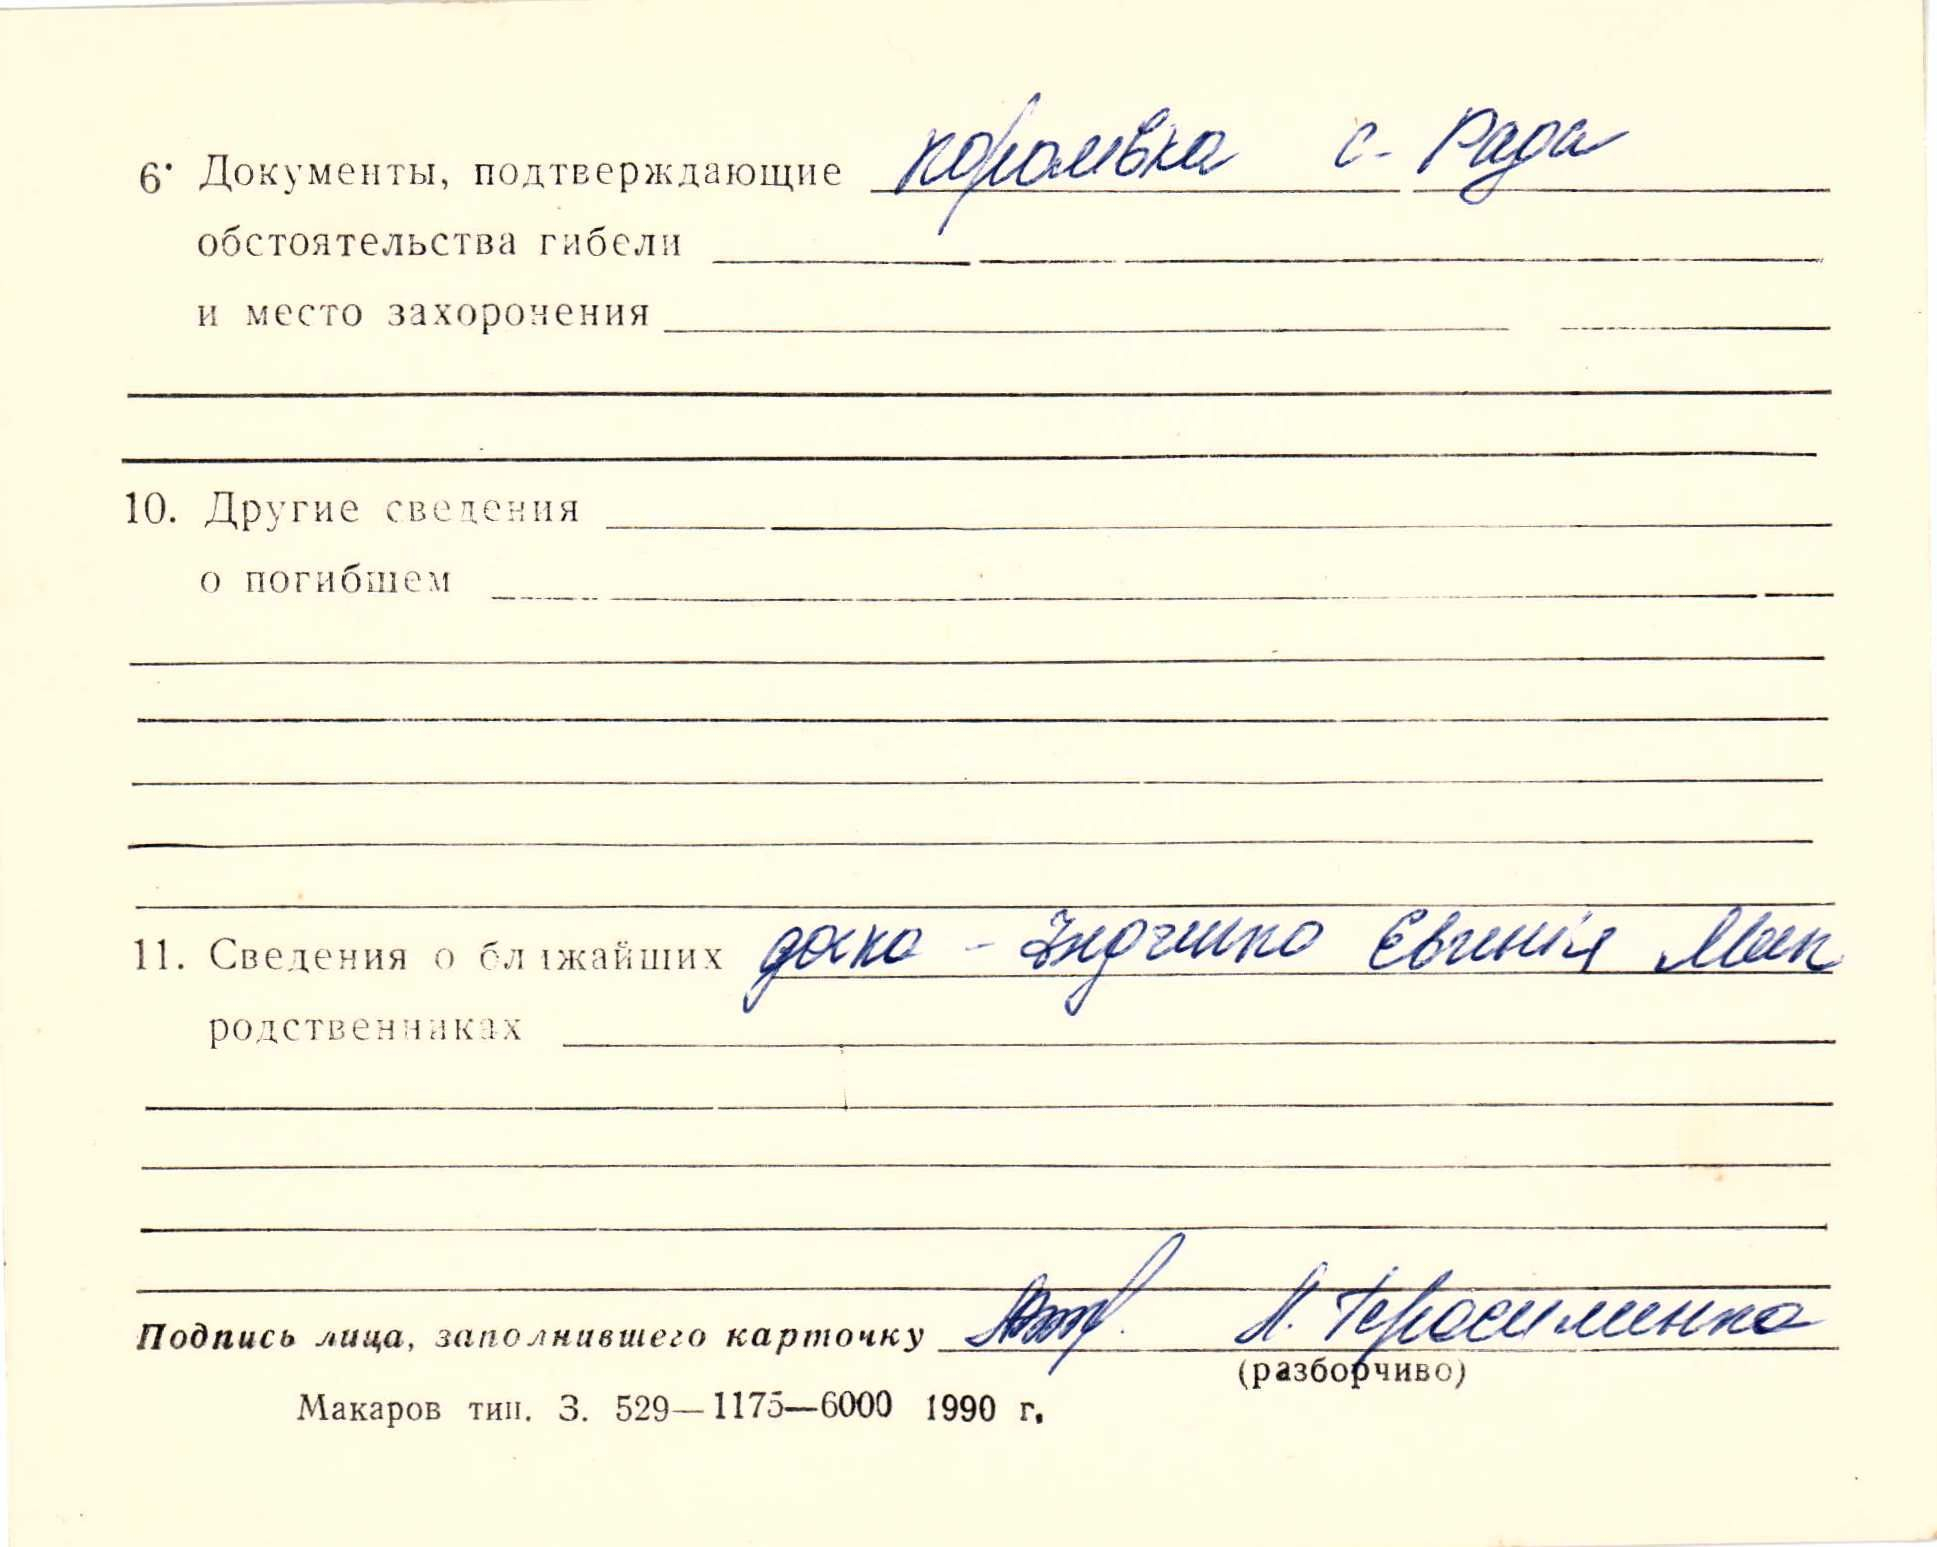 6. Документы, подтверждающие Королівка с. Рада
обстоятельства гибели
и место захоронения
10. Другие сведения
о погибшем
11. Сведения о ближайших дочка - Евгенія Мак
родственниках
Подпись лица, заполнившего карточку Л. Герасименко
(разборчиво)
Макаров тип. З. 529—1175—6000 1990 г.